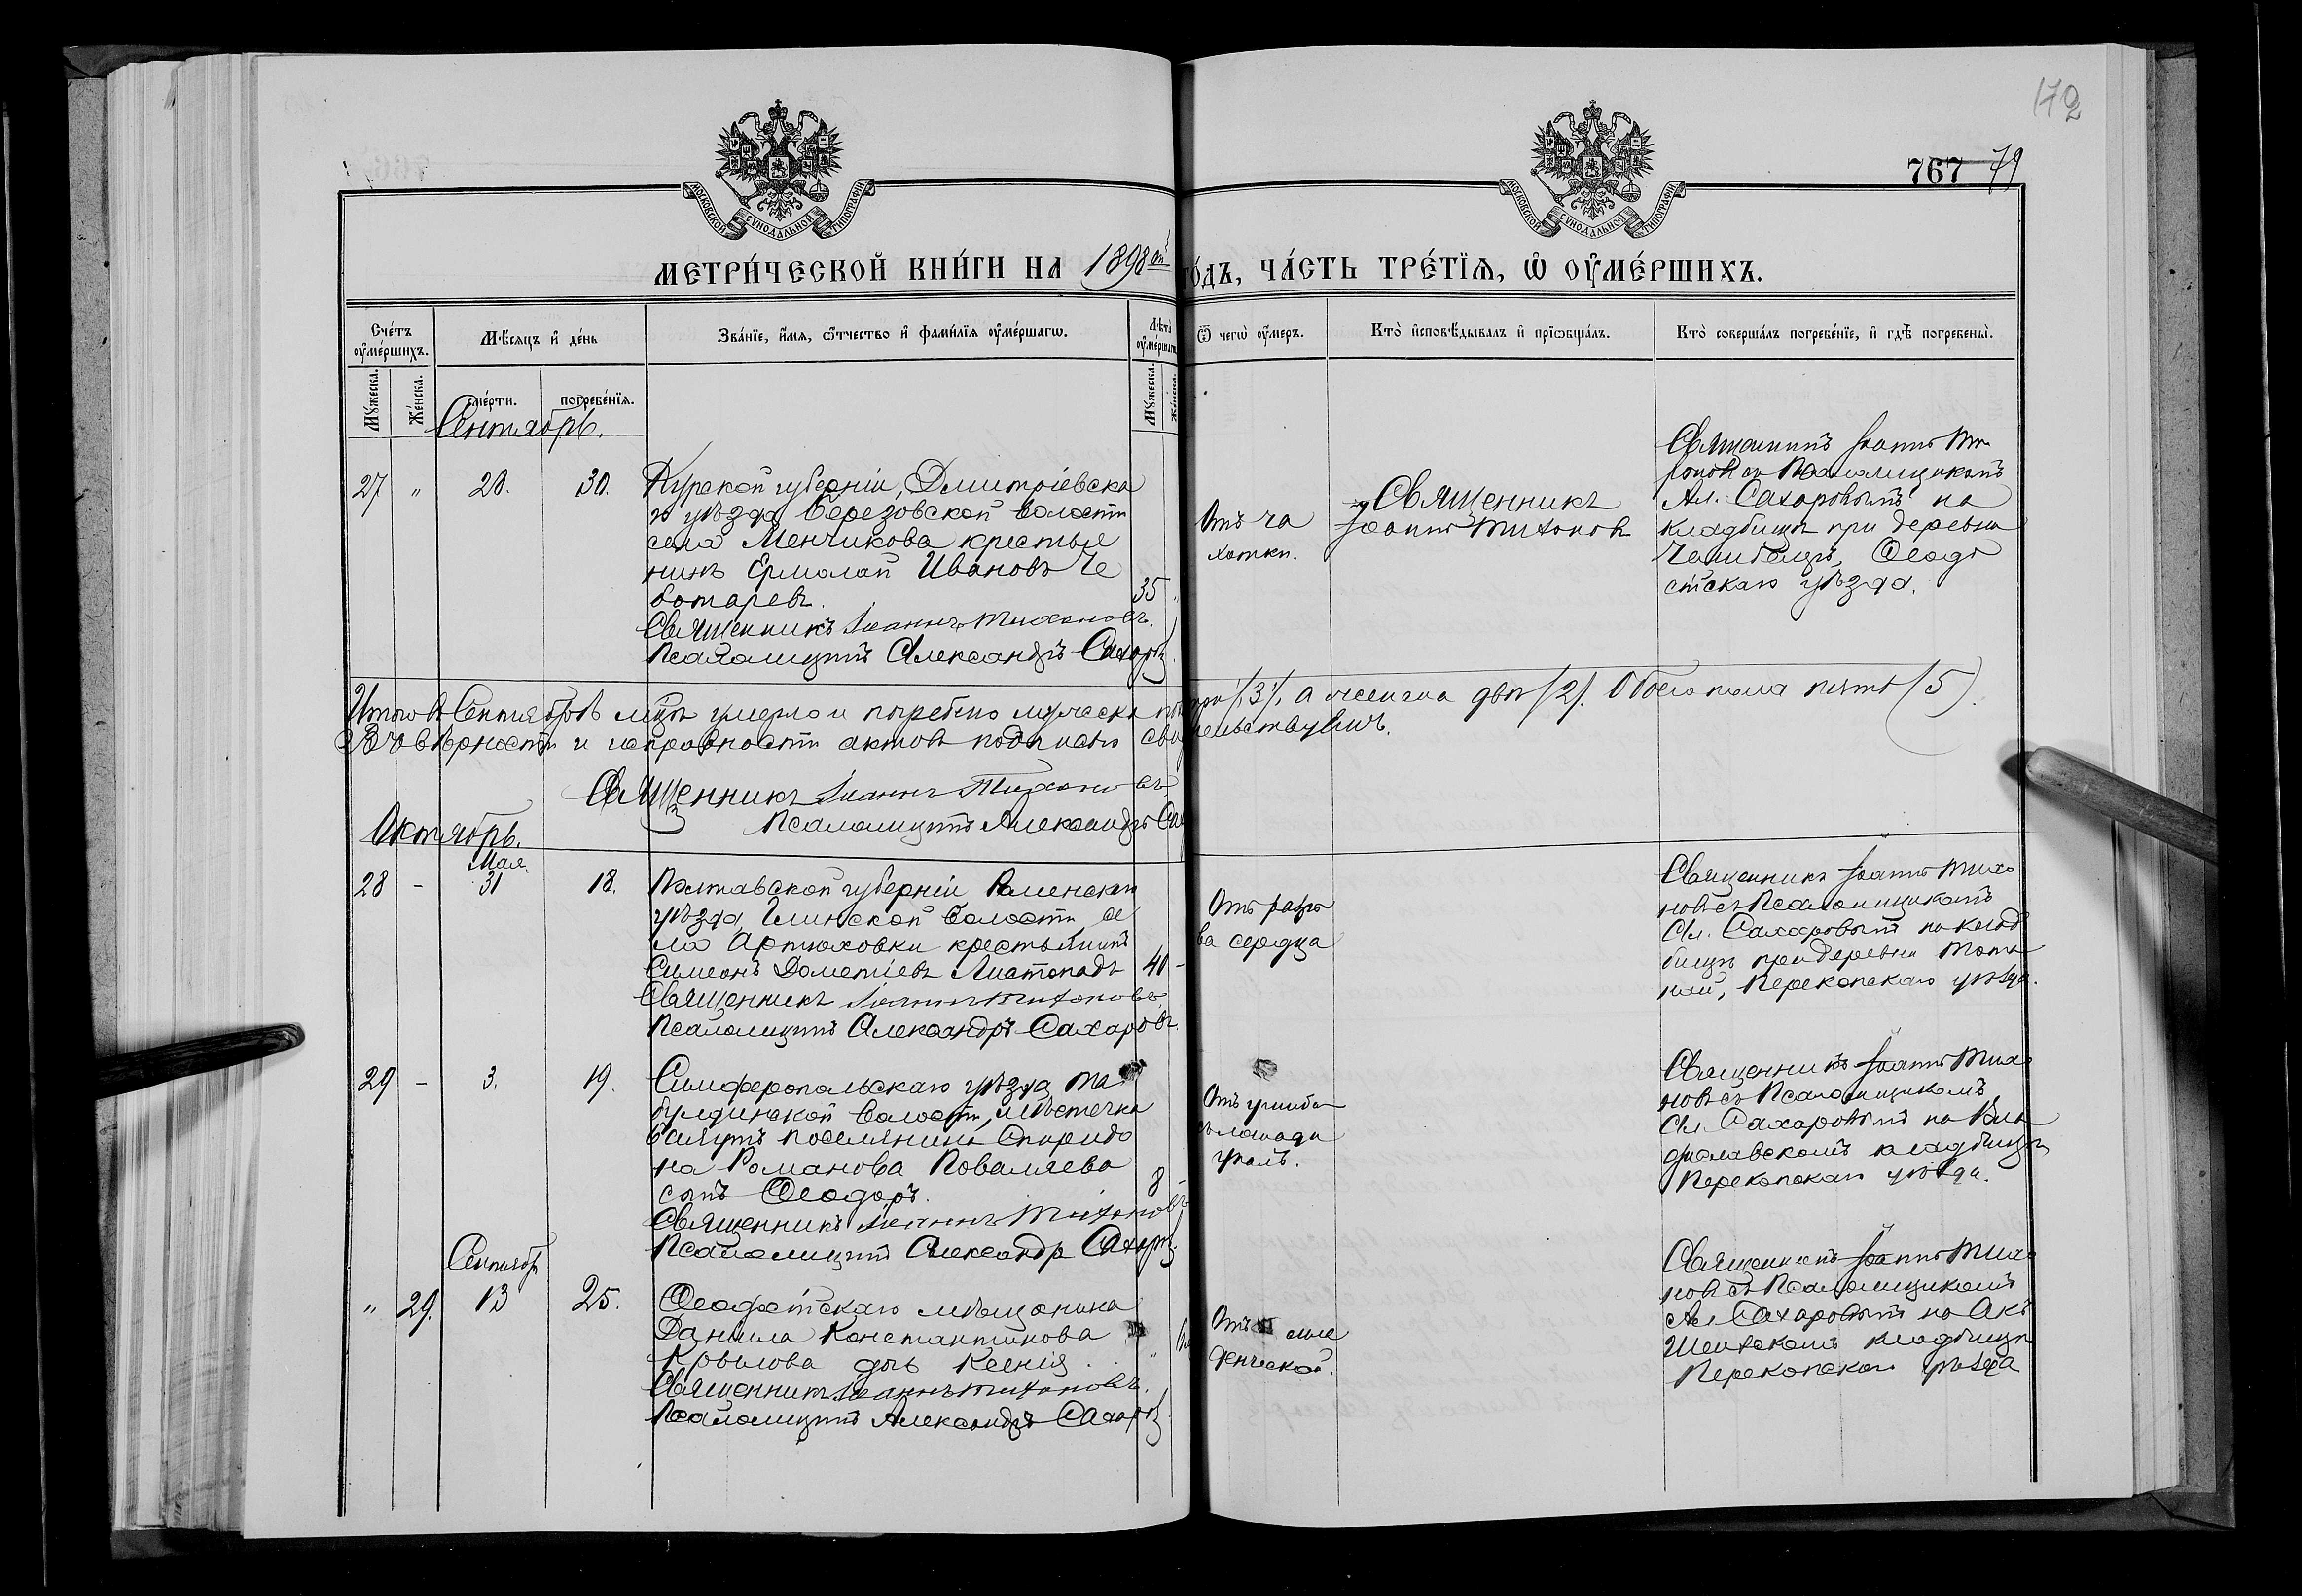 172
767 79
МОСКОВСКОЙ СѴНОДАЛЬНОЙ ТИПОГРАФІИ
МОСКОВСКОЙ СѴНОДАЛЬНОЙ ТИПОГРАФІИ
МЕТРИ́ЧЕСКОЙ КНИ́ГИ НА 1898ой ГО́ДЪ, ЧА́СТЬ ТРЕ́ТІѦ, Ѡ ОУМЕ́РШИХЪ.
Сче́тъ оумершихъ.
Мѣсяцъ и де́нь
Зва́ніе, и́мя, ѿтчество и фами́лія оуме́ршагѡ.
Лѣта оумершагѡ
Ѿ чегѡ оумеръ.
Кто исповѣдывалъ и пріѡбщалъ.
Кто совершалъ погребеніе, и гдѣ погребены.
Мужеска.
Женска.
смерти.
погребенія.
Мужеска.
Женска.
Сентябрь.
27 " 28. 30.
Курской губерніи, Дмитріевска
го уѣзда Березовской волости
села Менчикова крестья
нинъ Ермолай Ивановъ Че
ботаревъ.
35 "
Священникъ Іоаннъ Тихоновъ.
Псаломщикъ Александръ Сахаровъ
Отъ ча
хотки.
Священникъ
Іоаннъ Тихоновъ
Священникъ Іоаннъ Ти
хоновъ съ Псаломщикомъ
Ал. Сахаровымъ на
кладбищѣ при деревни
Ѳеодо
сійскаго уѣзда.
Итого въ Сентябрѣ мцѣ умерло и погребено мужеска пола три (3), а женска двѣ (2). Обоего пола пять (5).
Что въ вѣрности и исправности актовъ подписью свидѣтельствуемъ.
Священникъ Іоаннъ Тихоновъ
Псаломщикъ Александръ Са
Октябрь.
Мая
28 - 31 18.
Полтавской губерніи Роменскаго
уѣзда, Глинской волости, се
ла Артюховки крестьянинъ
Симеонъ Дометіевъ Листопадъ
40 -
Священникъ Іоаннъ Тихоновъ.
Псаломщикъ Александръ Сахаровъ.
Отъ разры
ва сердца
Священникъ Іоаннъ Тихо
новъ съ Псаломщикомъ
Ал. Сахаровымъ на клад
бищѣ при деревни
Перекопскаго уѣзда.
29 - 3. 19.
Симферопольскаго уѣзда Та
булдинской волости, мѣстечка
поселянина Спиридо
на Романова Коваляева
сынъ Ѳеодоръ.
8 -
Священникъ Іоаннъ Тихоновъ
Псаломщикъ Александръ Сахаровъ.
Отъ ушиба
лошади
Священникъ Іоаннъ Тихо
новъ съ Псаломщикомъ
Ал. Сахаровымъ на Вла
диславскомъ кладбищѣ
Перекопскаго уѣзда.
Сентябр
" 29. 13 25.
Ѳеодосійскаго мѣщанина
Даніила Константинова
Крылова дочь Ксенія.
"
Священникъ Іоаннъ Тихоновъ.
Псаломщикъ Александръ Сахаровъ
Отъ мла
денческой.
Священникъ Іоаннъ Тихо
новъ съ Псаломщикомъ
Ал Сахаровымъ на Акъ
Шеихскомъ кладбищѣ
Перекопскаго уѣзда